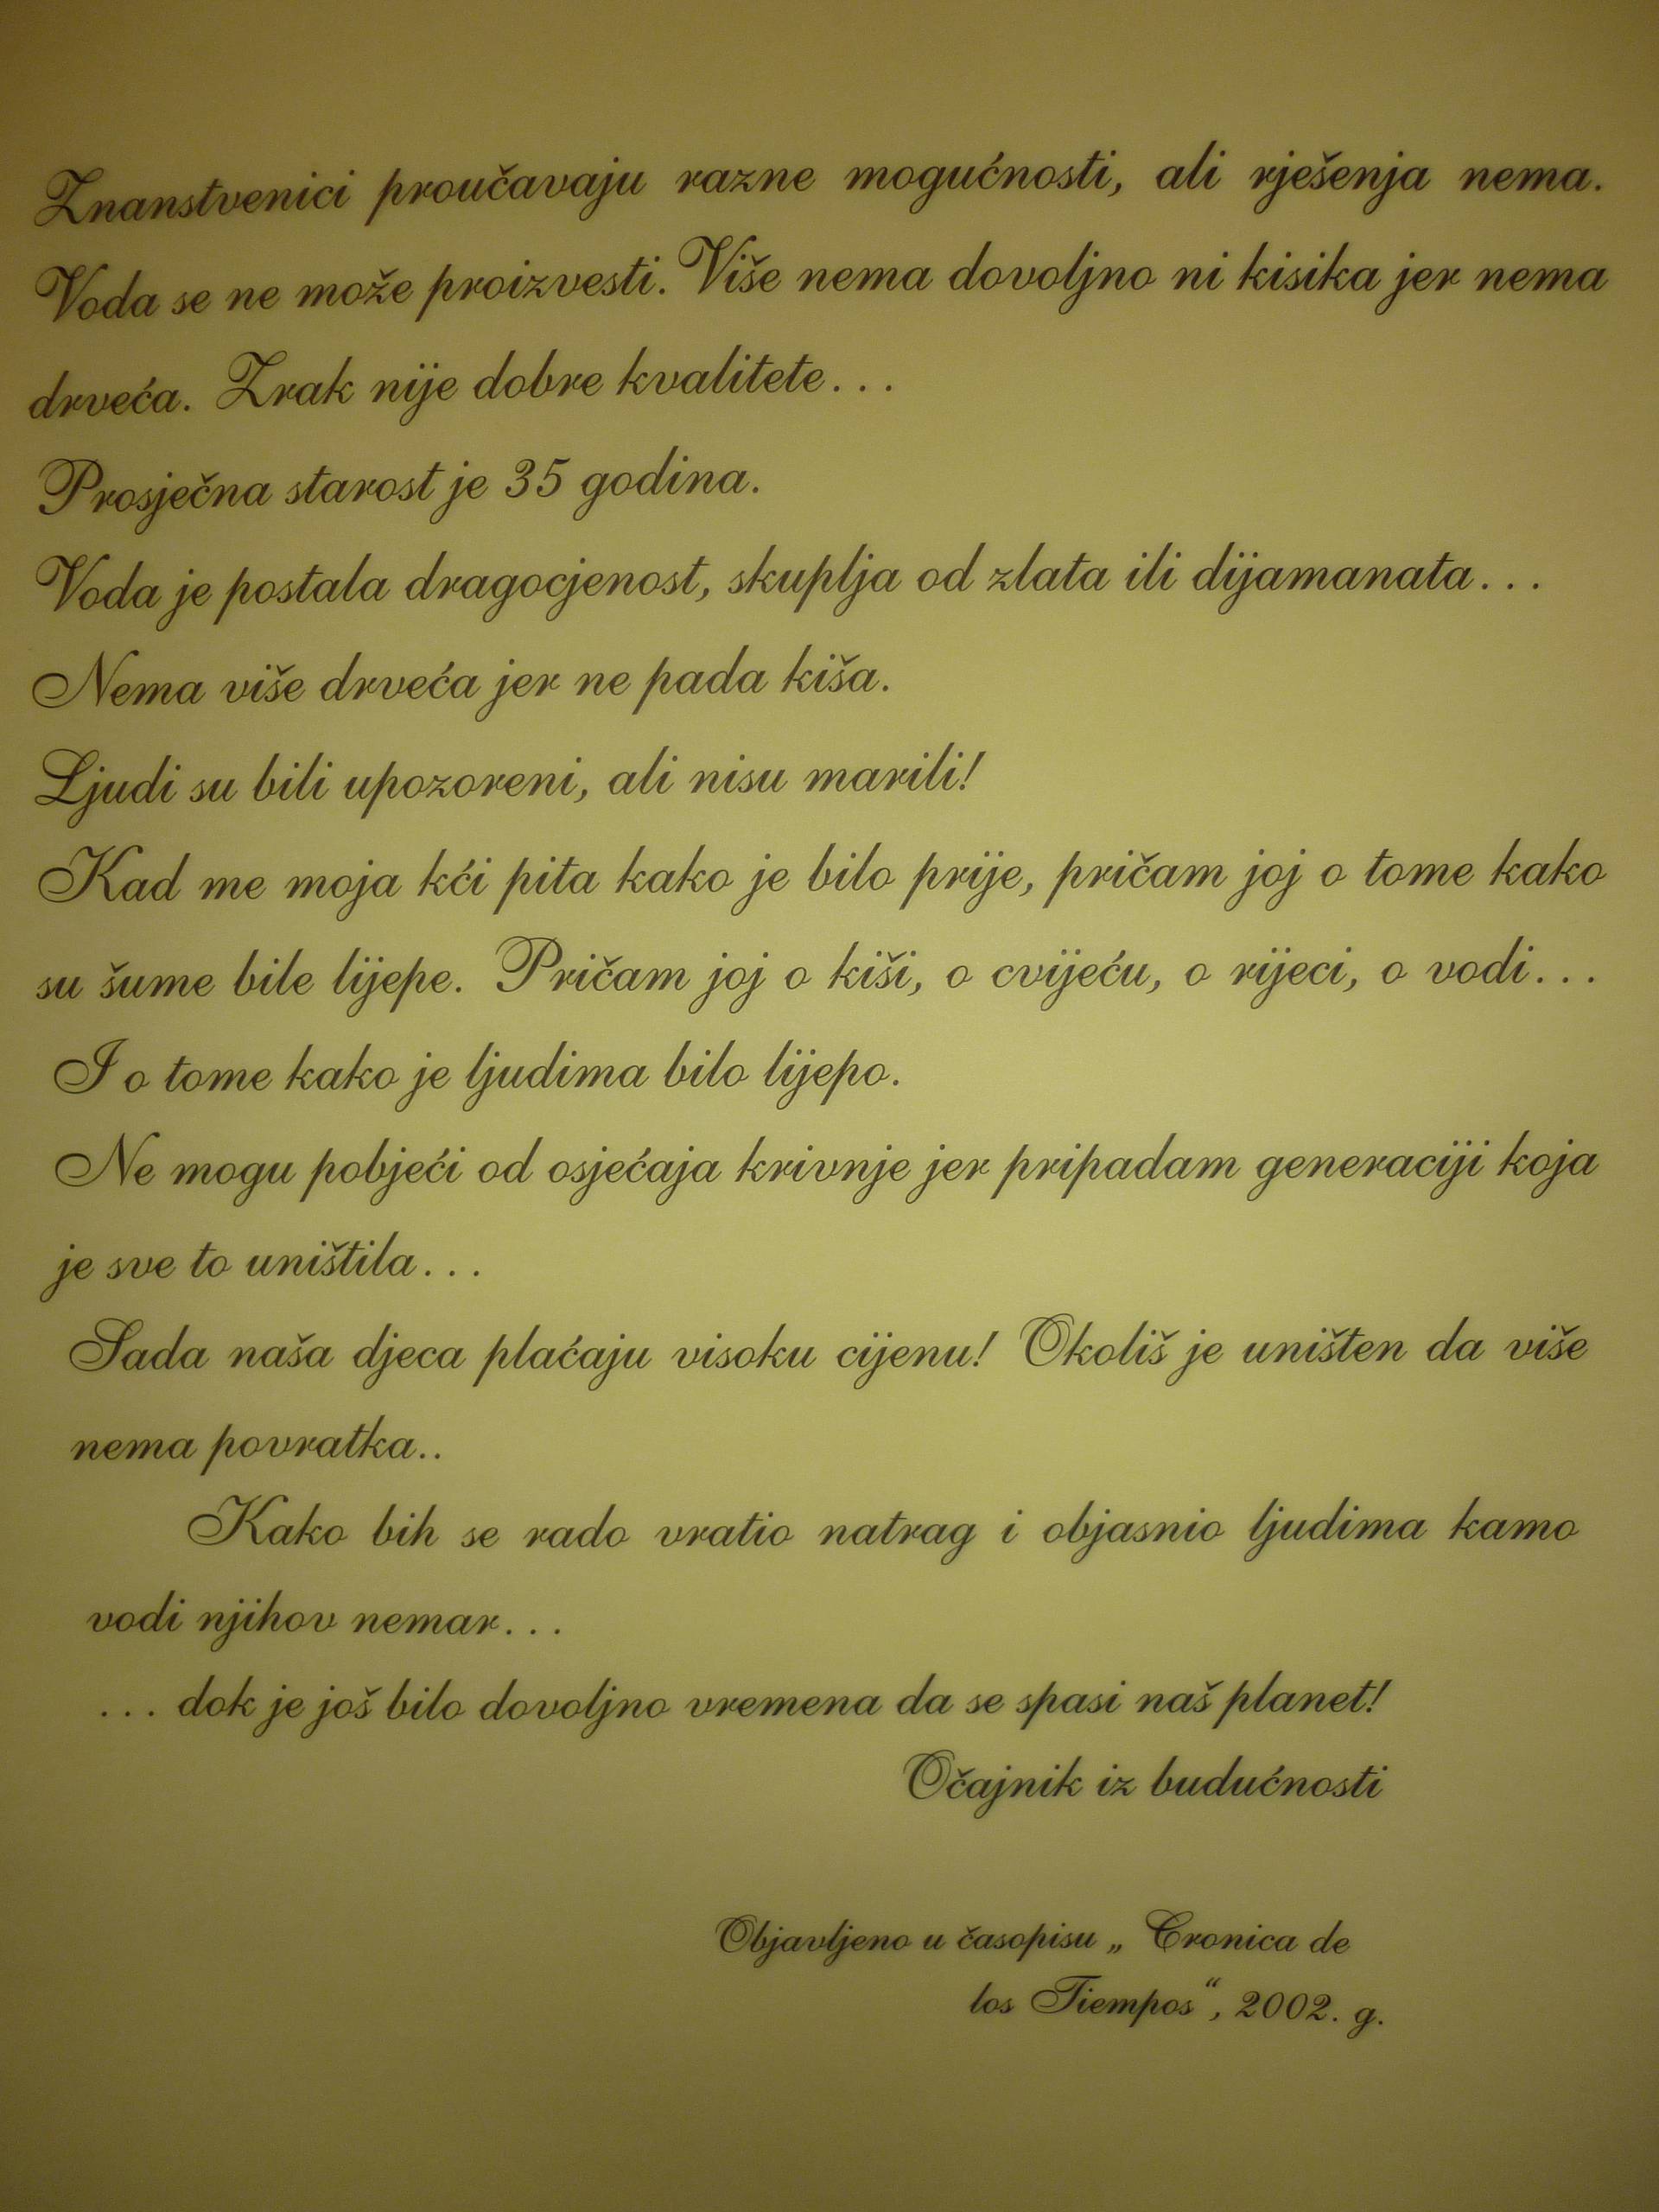 Znanstvenici proučavaju razne mogućnosti, ali rješenja nema.
Voda se ne može proizvesti. Više nema dovoljno ni kisika jer nema
drveća. Zrak nije dobre kvalitete...
Prosječna starost je 35 godina.
Voda je postala dragocjenost, skuplja od zlata ili dijamanata...
Nema više drveća jer ne pada kiša.
Ljudi su bili upozoreni, ali nisu marili!
Kad me moja kći pita kako je bilo prije, pričam joj o tome kako
su šume bile lijepe. Pričam joj o kiši, o cvijeću, o rijeci, o vodi...
I o tome kako je ljudima bilo lijepo.
Ne mogu pobjeći od osjećaja krivnje jer pripadam generaciji koja
je sve to uništila...
Sada naša djeca plaćaju visoku cijenu! Okoliš je uništen da više
nema povratka..
Kako bih se rado vratio natrag i objasnio ljudima kamo
vodi njihov nemar...
... dok je još bilo dovoljno vremena da se spasi naš planet!
Očajnik iz budućnosti
Objavljeno u časopisu „ Cronica de
los Tiempos“, 2002. g.